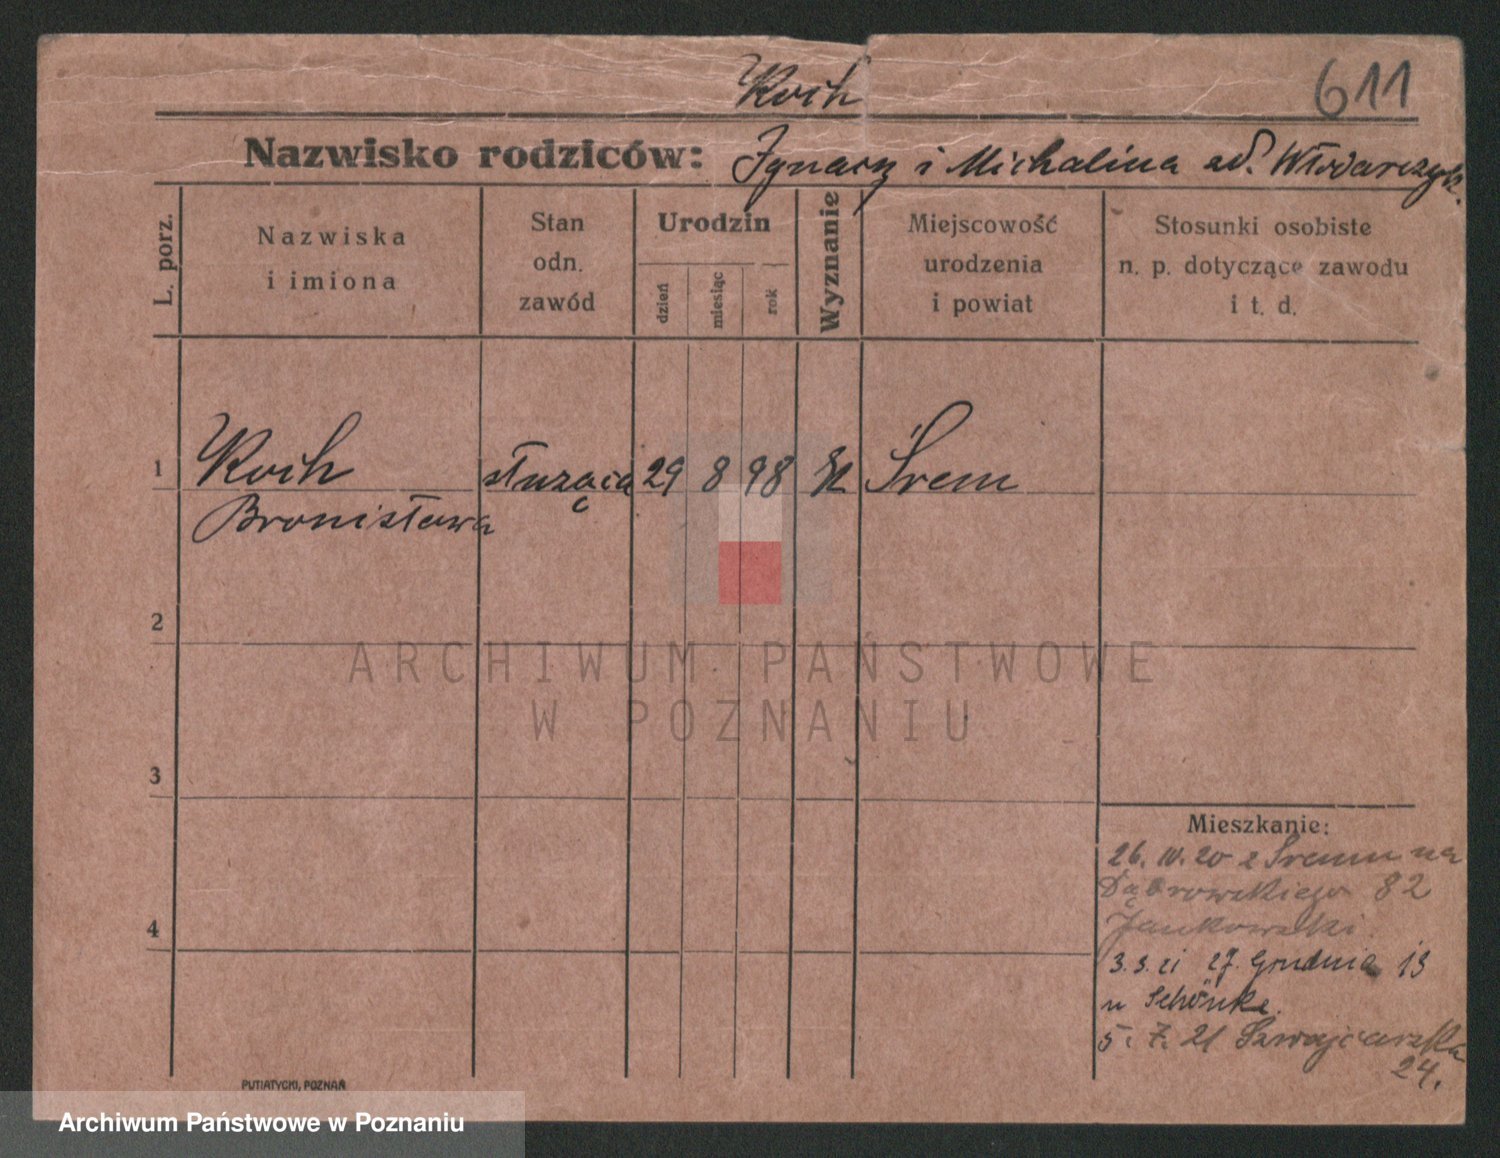 Koch
611
Nazwisko rodziców: Ignacy i Michalina zd. Włodarczyk.
L. porz.
Nazwiska
i imiona
Stan
odn.
zawód
Urodzin
dzień
miesiąc
rok
Wyznanie
Miejscowość
urodzenia
i powiat
Stosunki osobiste
n. p. dotyczące zawodu
i t. d.
1
Koch
Bronisława
służąca
29 8 98
Śrem
2
ARCHIWUM PAŃSTWOWE
W POZNANIU
3
4
Mieszkanie:
26. IV. 20 z Śremu na
Dąbrowskiego 82
Jankowski.
3.3.21 27. Grudnia 13
u Schönke.
5. 7. 21 Szwajcarska
24.
PUTIATYCKI, POZNAŃ
Archiwum Państwowe w Poznaniu